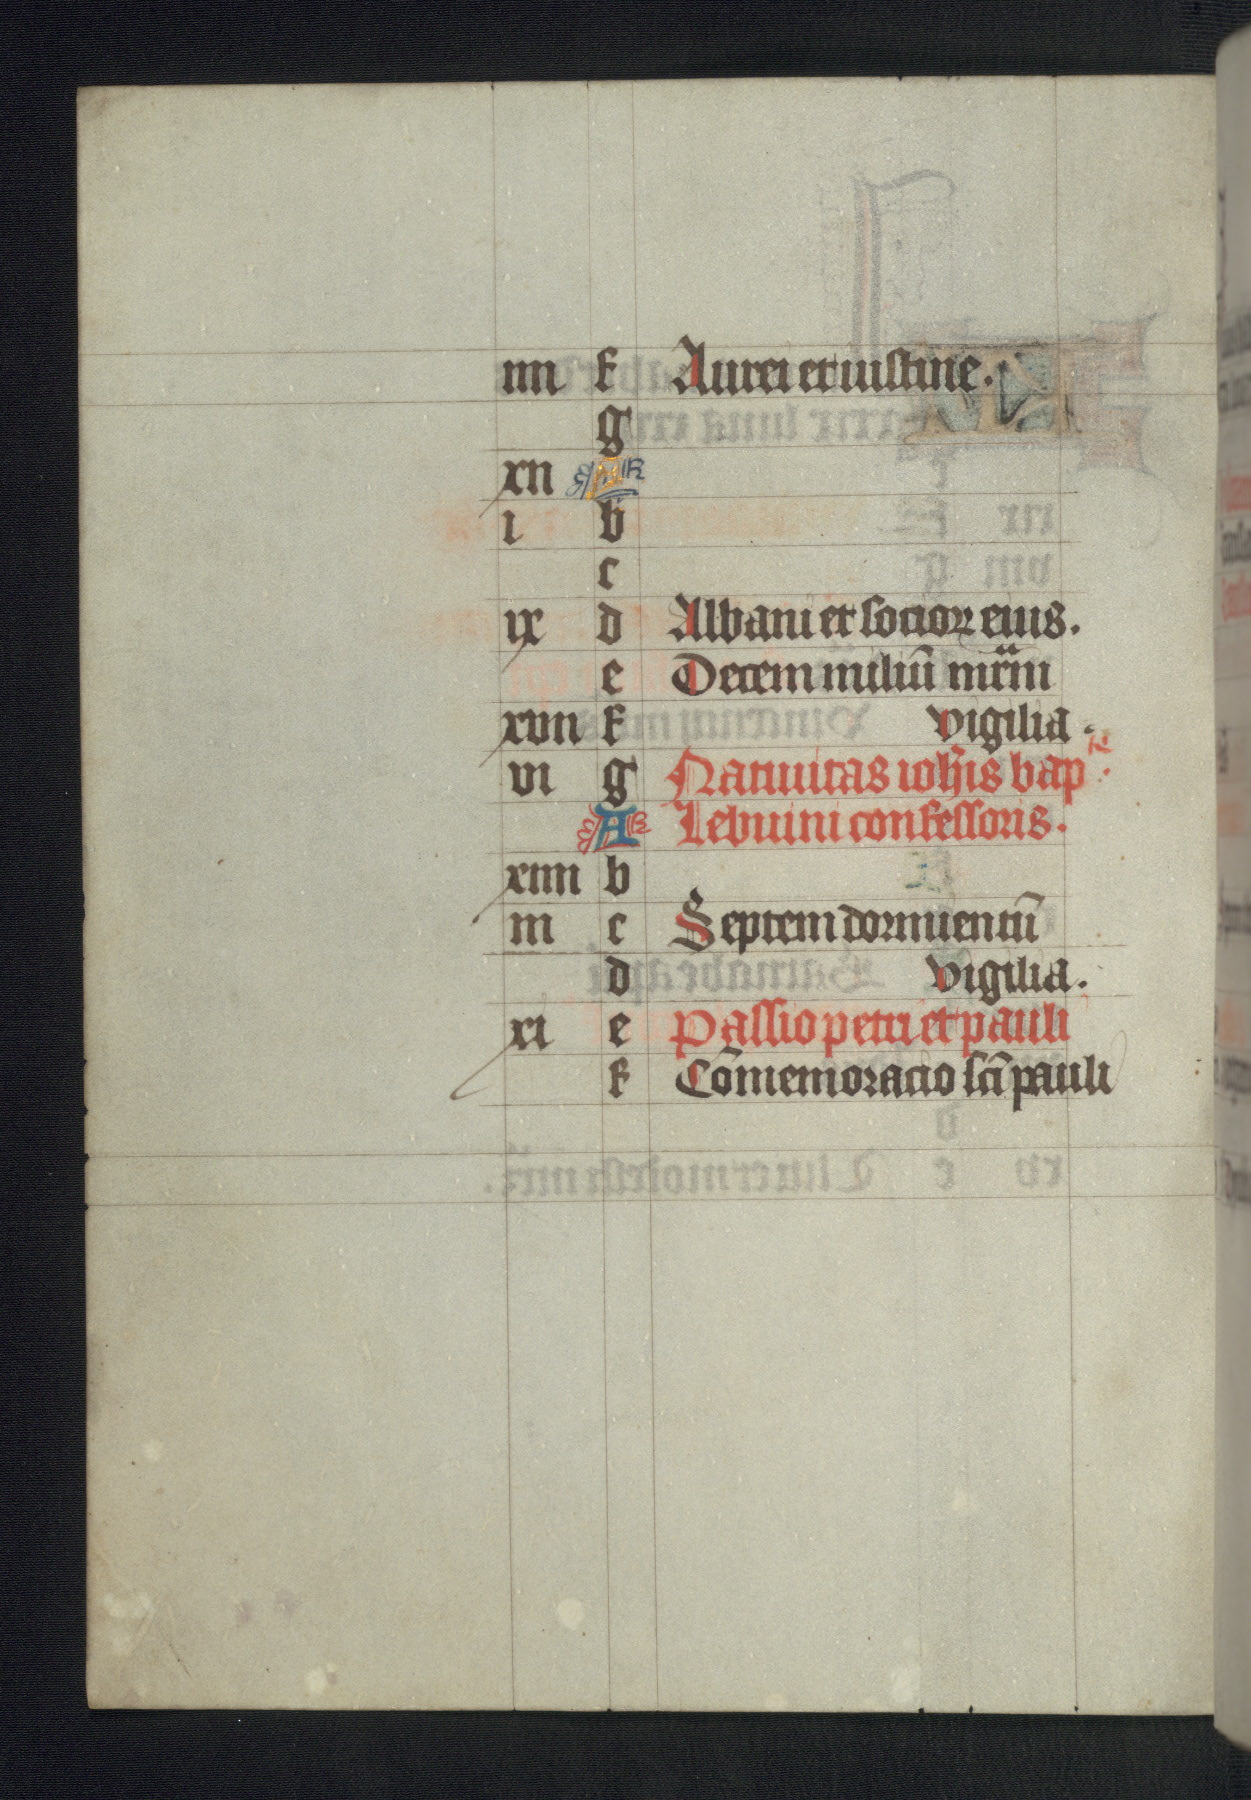 iiii f Aurei et iustine.
g
xii A
i b
c
ix d Albani et socioꝝ eius.
e Decem miliū mr̄m
xvii f vigilia.
vi g Natiuitas ioh̄is bap^te.
A Lebuini confessoris.
xiiii b
iii c Septem dormientiū
d vigilia.
xi e Passio petri et pauli
f Cōmemoracio sc̄i pauli